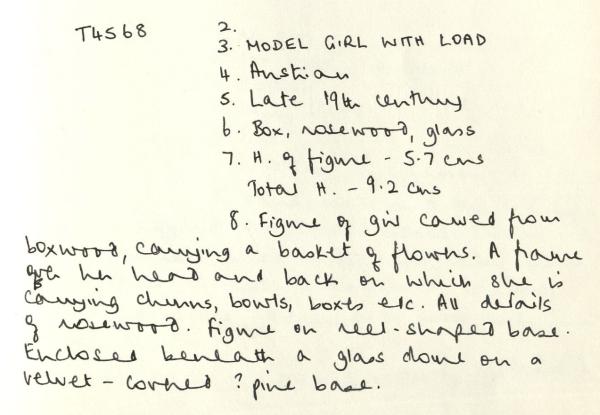 T4568
2.
3. MODEL GIRL WITH LOAD
4. Austrian
5. Late 19th century
6. Box, rosewood, glass
7. H. of figure - 5.7 cms
Total H. - 9.2 cms
8. Figure of girl carved from
boxwood, carrying a basket of flowers. A frame
over her head and back on which she is
carrying churns, bowls, boxes etc. All details
of rosewood. Figure on reel-shaped base.
Enclosed beneath a glass dome on a
velvet-covered ? pine base.